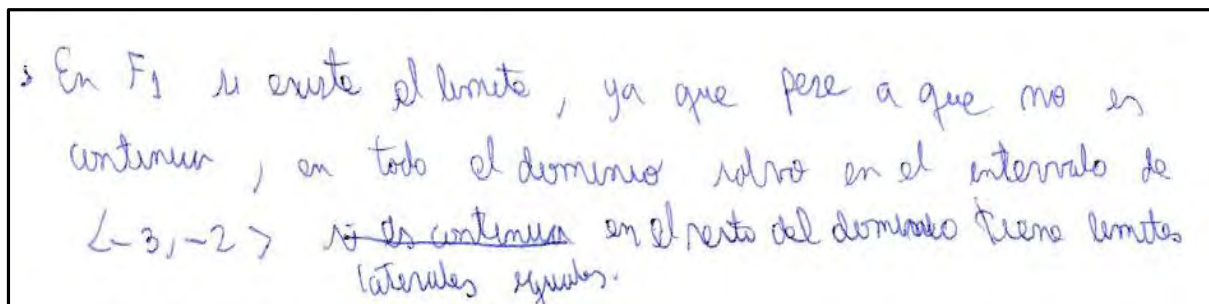 En F1 si existe el limite, ya que pese a que no es
continua, en todo el dominio salvo en el intervalo de
<-3,-2> si es continua en el resto del dominio tiene limites
laterales iguales.